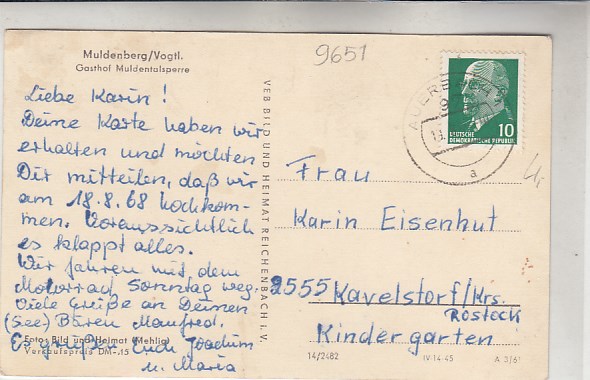 9651
Muldenberg/Vogtl.
Gasthof Muldentalsperre
Liebe Karin!
Deine Karte haben wir
erhalten und möchten
Dir mitteilen, daß wir
am 18.8.68 hochkom-
men. Voraussichtlich
es klappt alles.
Wir fahren mit dem
Motorrad Sonntag weg.
Viele Grüße an Deinen
(See) Bären Manfred.
Foto: Bild und Heimat (Mehlig)
Es grüßen Euch Joachim
Verkaufspreis DM -.15
u. Maria
VEB BILD UND HEIMAT REICHENBACH i. V.
DEUTSCHE
DEMOKRATISCHE REPUBLIK
10
a
Frau
Karin Eisenhut
2555 Kavelstorf/Krs.
Rostock
Kindergarten
14/2482 IV-14-45 A 3/61